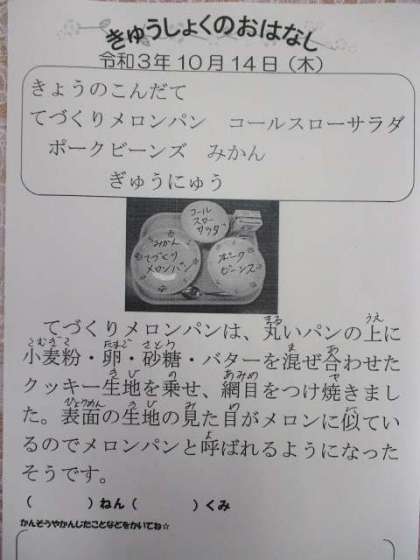 きゅうしょくのおはなし
令和3年10月14日（木）
きょうのこんだて
てづくりメロンパン　コールスローサラダ
ポークビーンズ　みかん
ぎゅうにゅう
コール
スロー
サラダ
みかん
てづくり
メロンパン
ポーク
ビーンズ
てづくりメロンパンは、丸いパンの上に
小麦粉・卵・砂糖・バターを混ぜ合わせた
クッキー生地を乗せ、網目をつけ焼きまし
た。表面の生地の見た目がメロンに似てい
るのでメロンパンと呼ばれるようになった
そうです。
（　　　　）ねん（　　　　）くみ
かんそうやかんじたことなどをかいてね☆